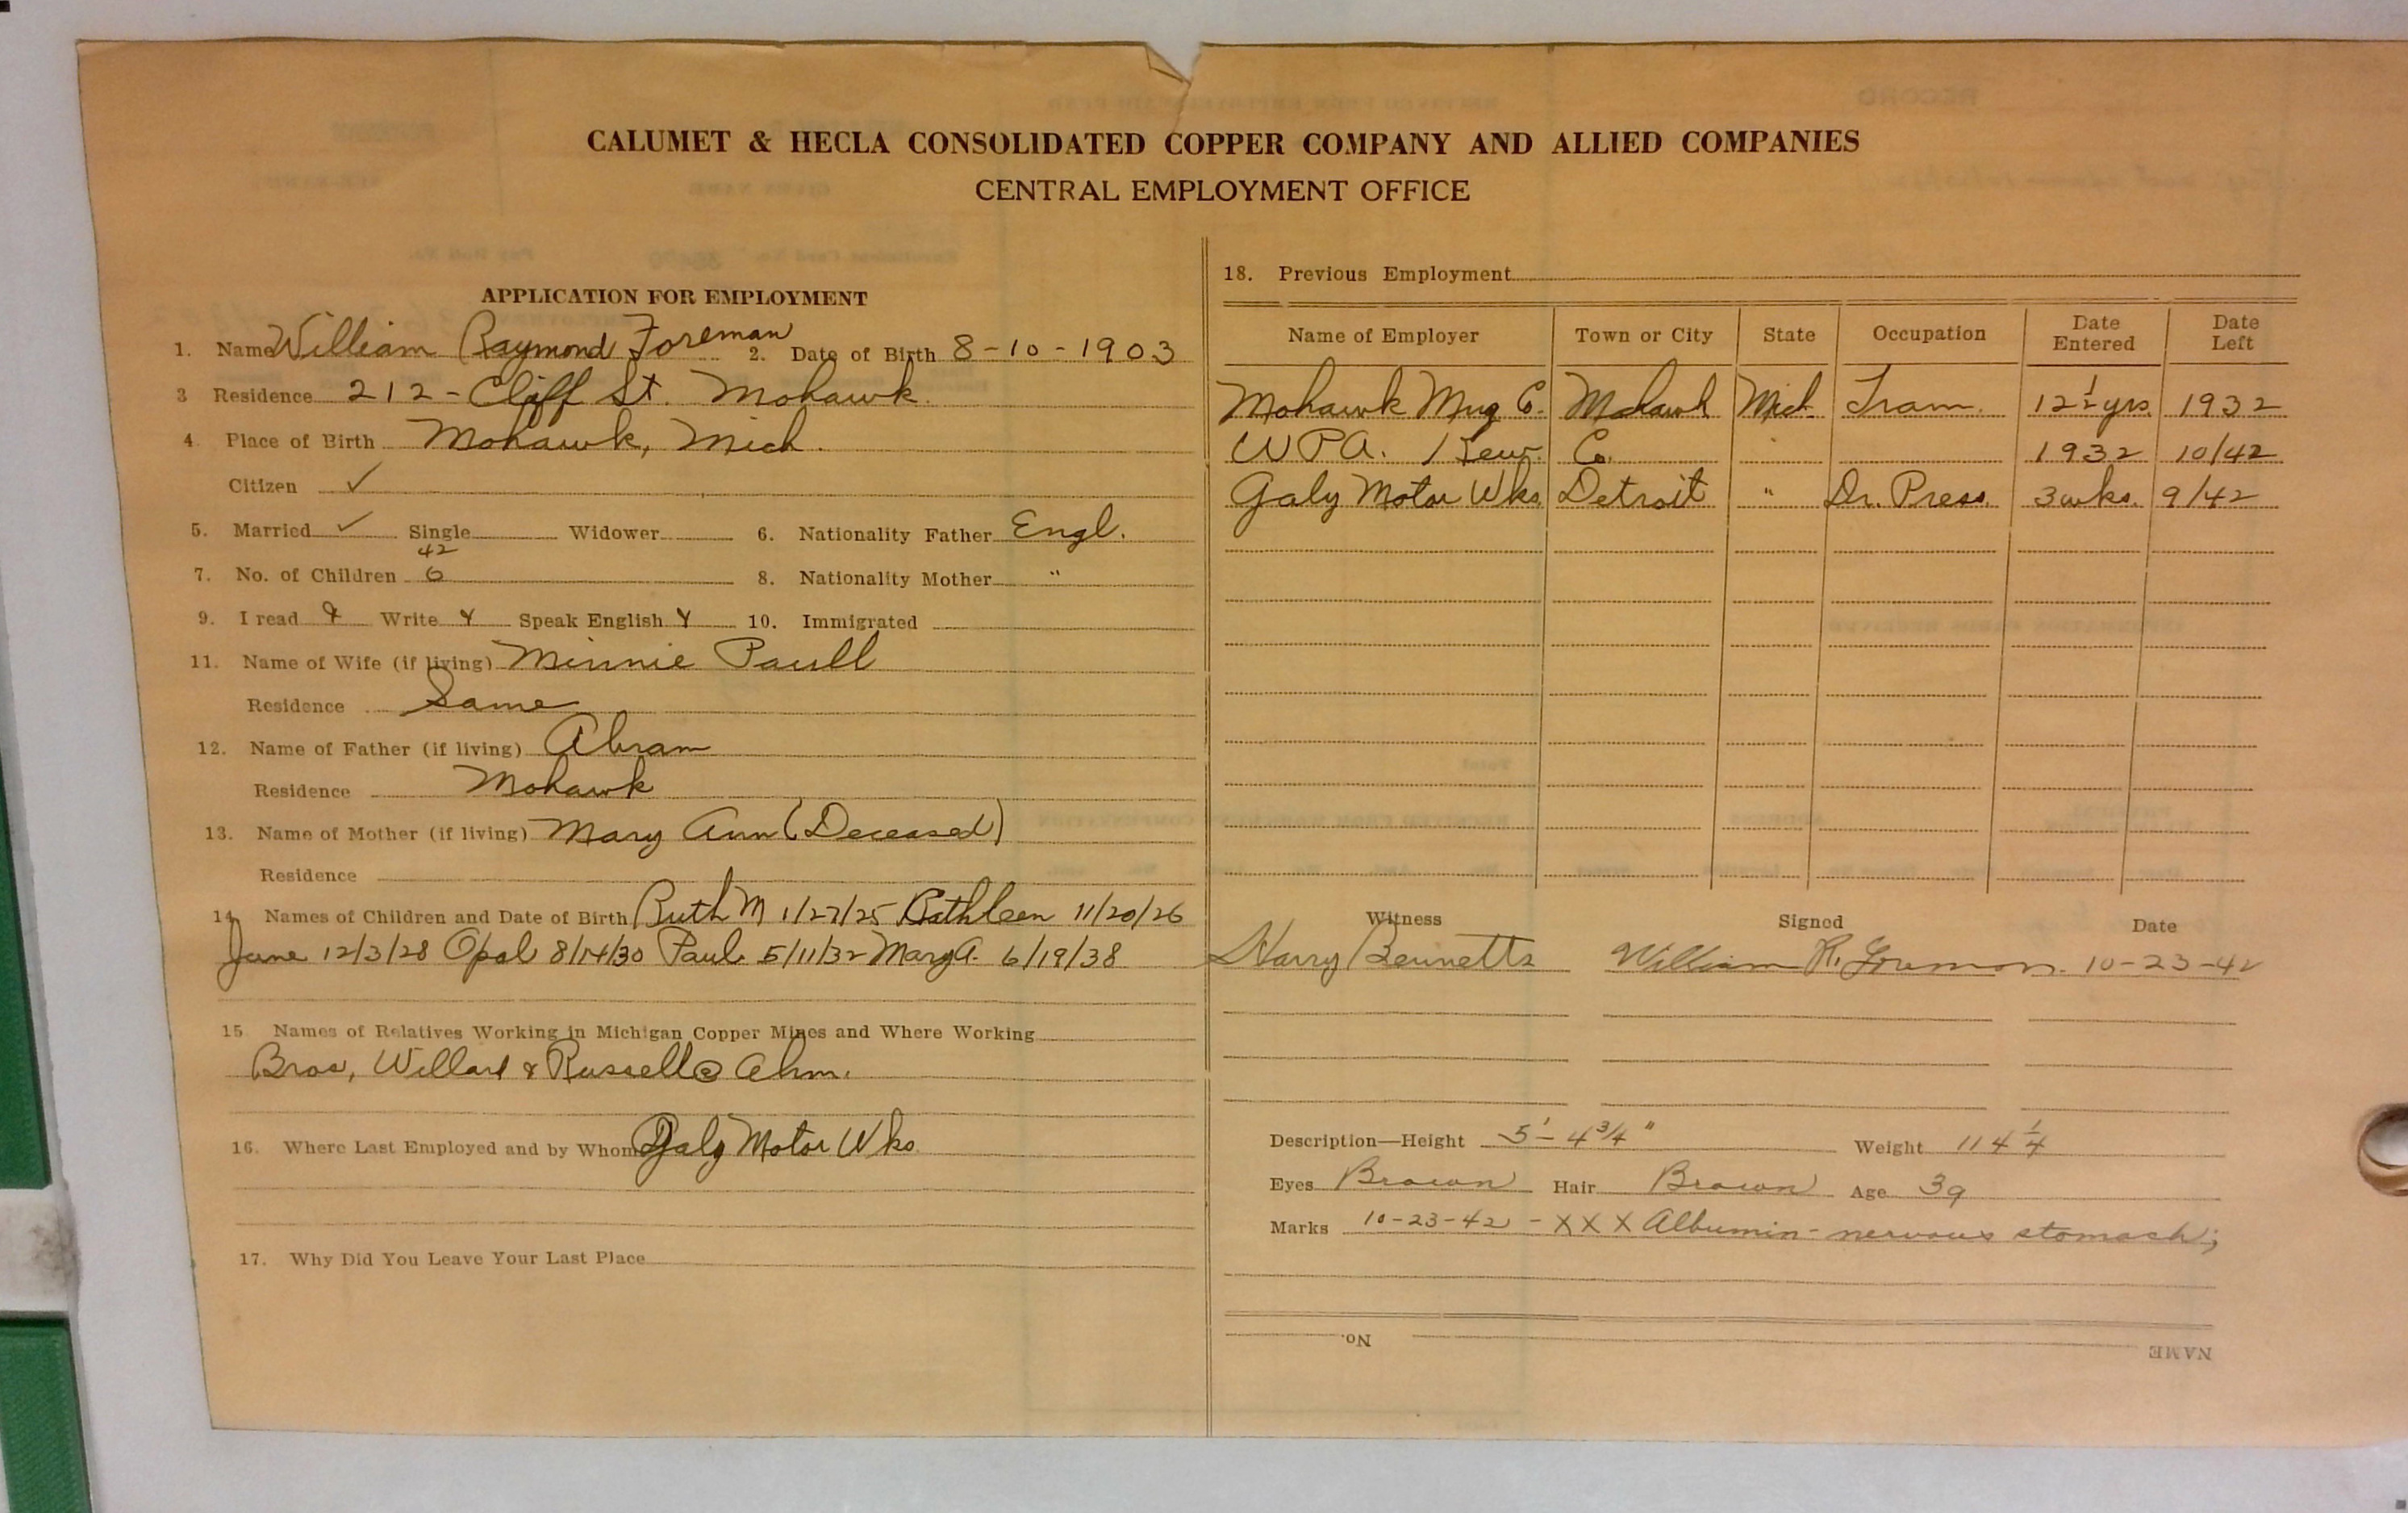 CALUMET & HECLA CONSOLIDATED COPPER COMPANY AND ALLIED COMPANIES
CENTRAL EMPLOYMENT OFFICE
APPLICATION FOR EMPLOYMENT
1. Name William Raymond Foreman 2. Date of Birth 8-10-1903
3 Residence 212 - Cliff St. Mohawk.
4. Place of Birth Mohawk, Mich.
Citizen ✓
5. Married ✓ Single Widower 6. Nationality Father Engl.
42
7. No. of Children 6 8. Nationality Mother "
9. I read Y Write Y Speak English Y 10. Immigrated
11. Name of Wife (if living) Minnie Paull
Residence Same
12. Name of Father (if living) Abram
Residence Mohawk
13. Name of Mother (if living) Mary Ann (Deceased)
Residence
14. Names of Children and Date of Birth Ruth M 1/27/25 Kathleen 11/20/26
June 12/3/28 Opal 8/14/30 Paul 5/11/32 Mary A. 6/19/38
15 Names of Relatives Working in Michigan Copper Mines and Where Working
Bros, Willard & Russell @ Ahm.
16. Where Last Employed and by Whom Galy Motor Wks
17. Why Did You Leave Your Last Place
18. Previous Employment
Name of Employer Town or City State Occupation Date Entered Date Left
Mohawk Mng Co. Mohawk Mich Tram. 12 1/2 yrs. 1932
W P A. Kew. Co. " 1932 10/42
Galy Motor Wks Detroit " Dr. Press. 3 wks. 9/42
Witness Signed Date
Harry Bennetts William R. Foreman. 10-23-42
Description—Height 5'- 4 3/4" Weight 114 1/4
Eyes Brown Hair Brown Age 39
Marks 10-23-42 - XXX Albumin - nervous stomach;
No. NAME